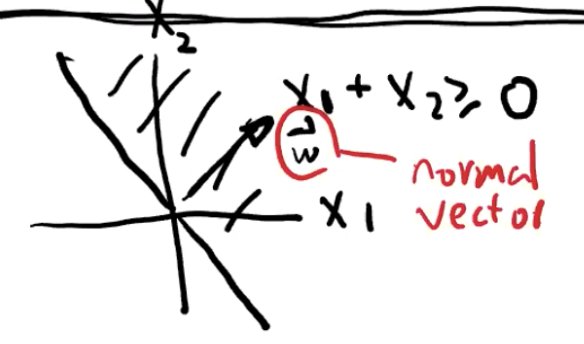 X₂
X₁ + X₂ ≥ 0
w⃗
normal
vector
X₁